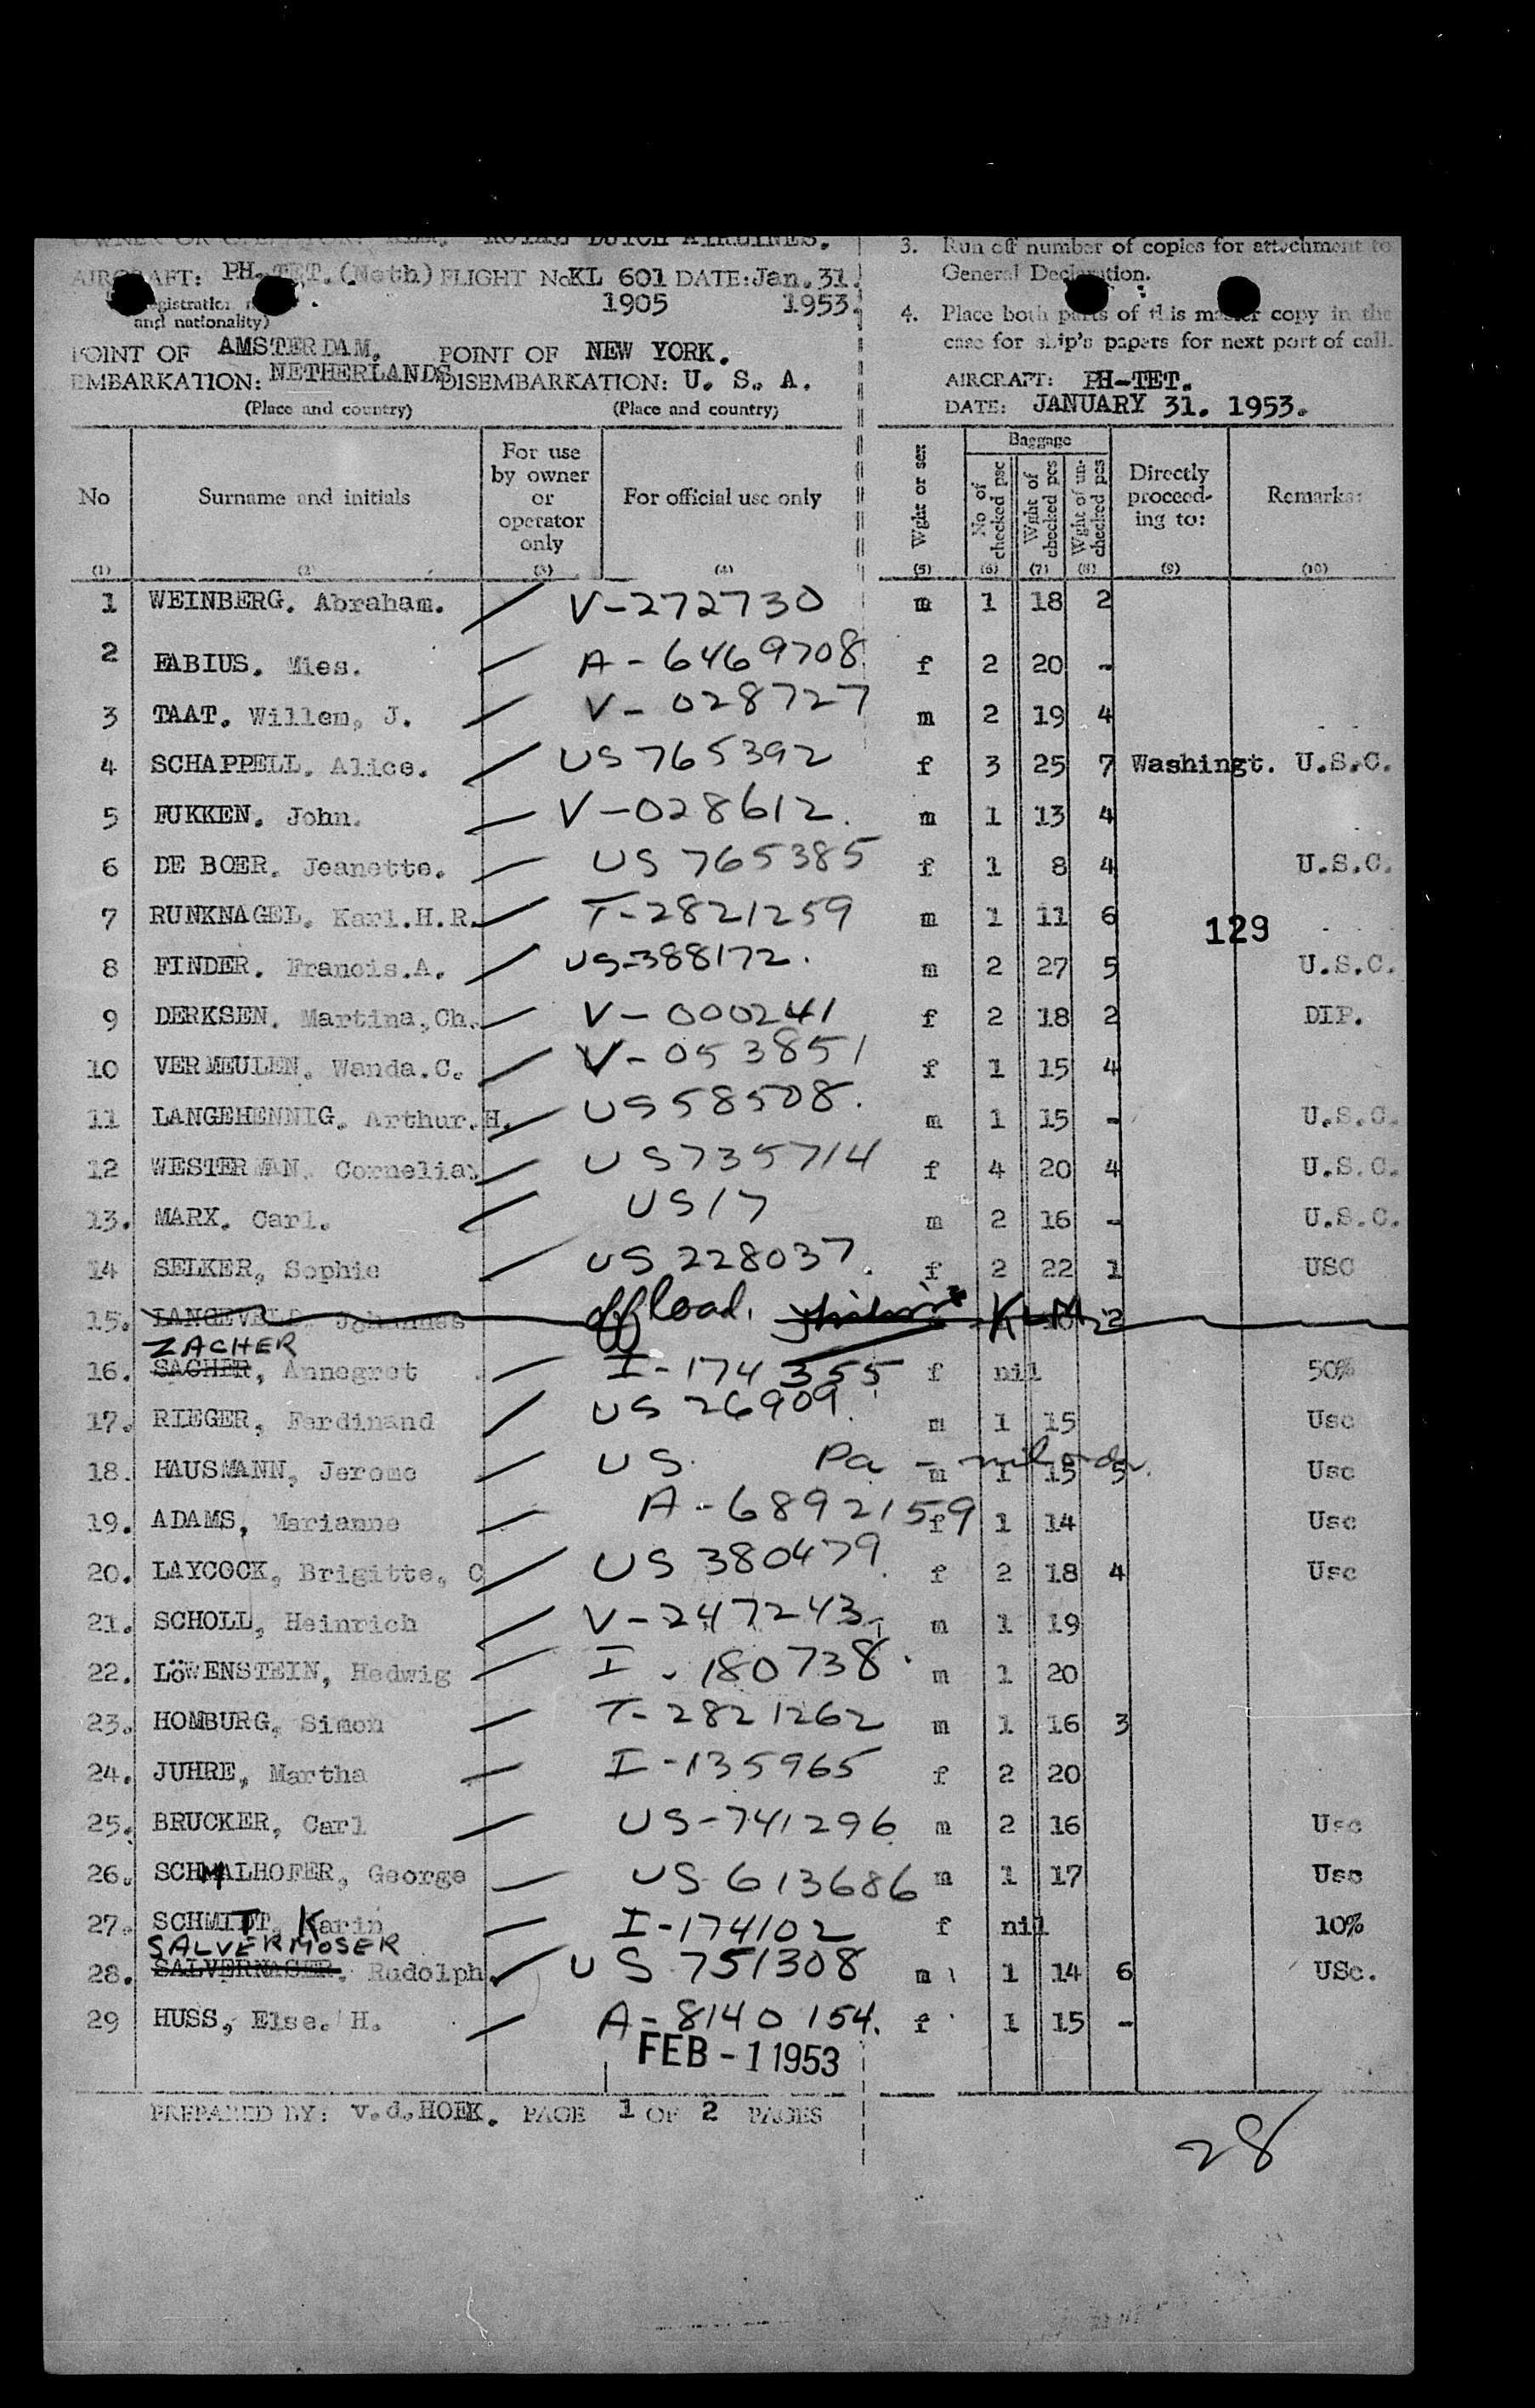 OWNER OR OPERATOR: K.L.M. ROYAL DUTCH AIRLINES.
AIRCRAFT: PH-TET. (Neth) FLIGHT No KL 601 DATE: Jan. 31.
(Registration
1905 1953.
and nationality)
POINT OF AMSTERDAM, POINT OF NEW YORK.
EMBARKATION: NETHERLANDS DISEMBARKATION: U. S. A.
(Place and country) (Place and country)
3. Run off number of copies for attachment to
General Declaration.
4. Place both parts of this master copy in the
case for ship's papers for next port of call.
AIRCRAFT: PH-TET.
DATE: JANUARY 31. 1953.
No Surname and initials For use by owner or operator only For official use only Wght or sex Baggage No of checked psc Wght of checked pcs Wght of un-checked pcs Directly proceed-ing to: Remarks:
(1) (2) (3) (4) (5) (6) (7) (8) (9) (10)
1 WEINBERG. Abraham. V-272730 m 1 18 2
2 FABIUS. Mies. A-6469708 f 2 20 -
3 TAAT. Willem, J. V-028727 m 2 19 4
4 SCHAPPELL. Alice. US 765392 f 3 25 7 Washingt. U.S.C.
5 FUKKEN. John. V-028612. m 1 13 4
6 DE BOER. Jeanette. US 765385 f 1 8 4 U.S.C.
7 RUNKNAGEL. Karl.H.R. T-2821259 m 1 11 6
129
8 FINDER. Francis.A. US-388172. m 2 27 5 U.S.C.
9 DERKSEN. Martina,Ch. V-000241 f 2 18 2 DIP.
10 VERMEULEN. Wanda.C. V-053851 f 1 15 4
11 LANGEHENNIG. Arthur.H. US 58508. m 1 15 - U.S.C.
12 WESTERMAN. Cornelia. US 735714 f 4 20 4 U.S.C.
13. MARX. Carl. US 17 m 2 16 - U.S.C.
14 SELKER, Sophie US 228037. f 2 22 1 USC
15. LANGEVELD. Johannes offload. KLM 2
ZACHER
16. SACHER, Annegret I-174355 f nil 50%
17. RIEGER, Ferdinand US 26909. m 1 15 Usc
18. HAUSMANN, Jerome US. Pa - mil ordr. m 1 15 5 Usc
19. ADAMS, Marianne A-6892159 f 1 14 Usc
20. LAYCOCK, Brigitte, C US 380479. f 2 18 4 Usc
21. SCHOLL, Heinrich V-247243 m 1 19
22. LöWENSTEIN, Hedwig I-180738. m 1 20
23. HOMBURG, Simon T-2821262 m 1 16 3
24. JUHRE, Martha I-135965 f 2 20
25. BRUCKER, Carl US-741296 m 2 16 Usc
26. SCHMALHOFER, George US 613686 m 1 17 Usc
27. SCHMIDT, Karin I-174102 f nil 10%
SALVERMOSER
28. SALVERNAGER. Rudolph. US 751308 m 1 14 6 USc.
29 HUSS, Else. H. A-8140154. f 1 15 -
FEB - 1 1953
PREPARED BY: v.d.HOEK. PAGE 1 OF 2 PAGES
28